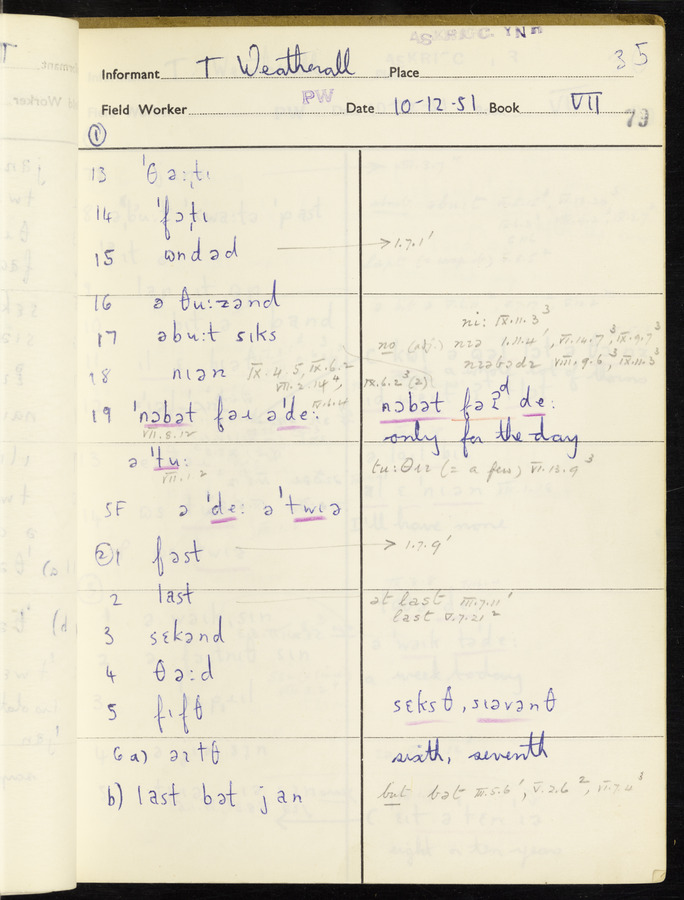 ASKRIGG. YN
35
Informant T Weatherall Place
PW
Field Worker Date 10-12-51 Book VII
79
①
13 ˈθəːtɪ
14 ˈfɒtɪ
15 ʊndəd → 1.7.1'
16 ə θuːzənd
17 əbuːt sɪks
ni: IX.11.3³
no (adj.) nɪə 1.11.4', VI.14.7³, IX.9.7³
nɪəbədɪ VIII.9.6³, IX.11.3³
18 nɪən IX.4.5, IX.6.2
VII.2.14⁴, IX.6.4
IX.6.2³(2)
19 ˈnɒbət fəɪ əˈdeː
VII.5.12
nɒbət fəɪd deː
only for the day
əˈtuː
VII.1.2
tuːθɪɪ (= a few) VI.13.9³
SF ə ˈdeː əˈtwɪə
② 1 fəst → 1.7.9'
2 last
at last III.7.11'
last V.7.21²
3 sɛkənd
4 θəːd
5 fɪfθ
sɛksθ, sɪəvənθ
6 a) əɪtθ
sixth, seventh
b) last bət jan
but bət IV.5.6', V.2.6², VI.7.4³